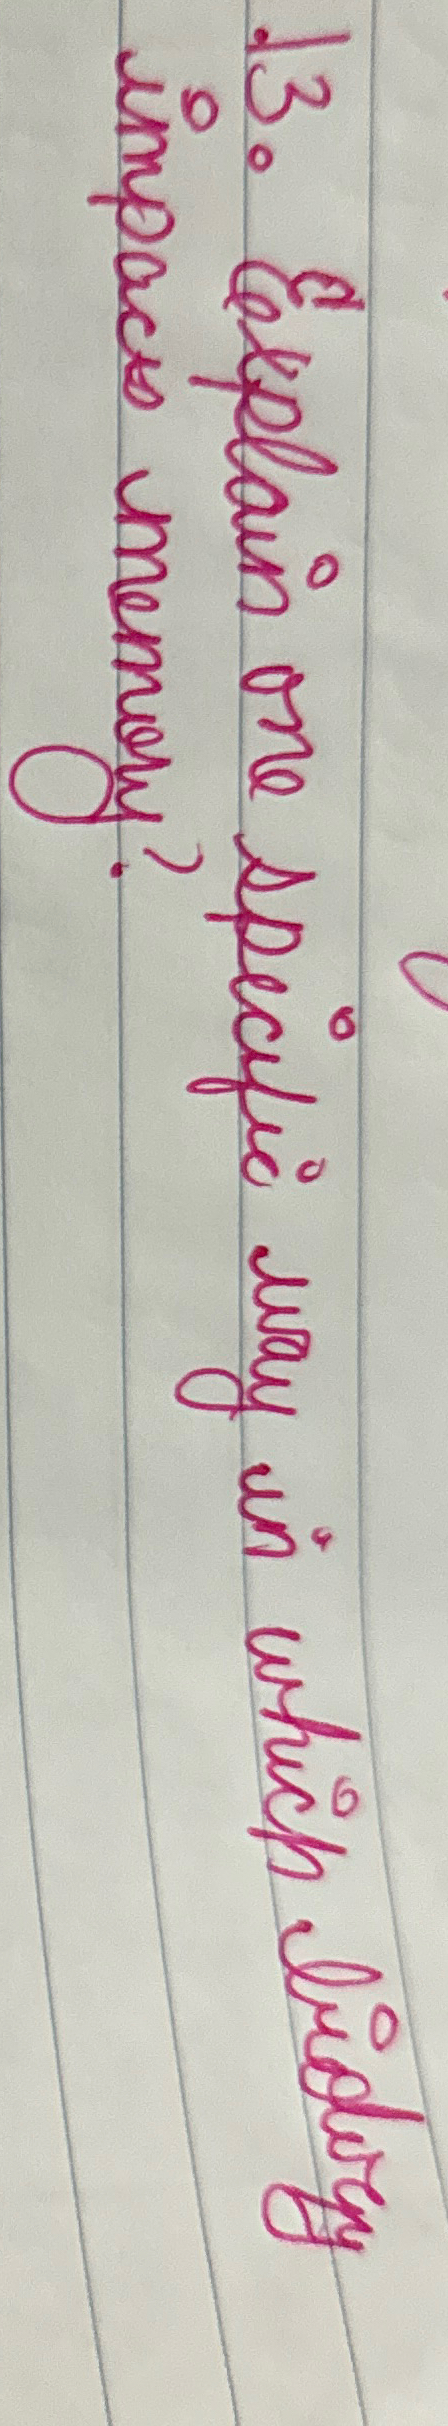 13. Explain one specific way in which biology
impacts memory?